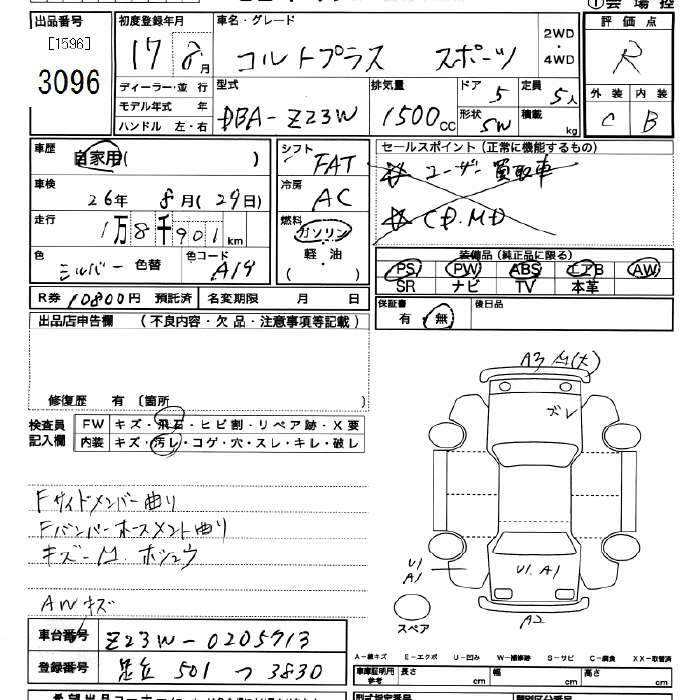 出品番号 [1596] 3096
初度登録年月 17 8月
車名・グレード コルトプラス スポーツ 2WD・4WD
評価点 R
外装 C 内装 B
ディーラー・並行
モデル年式 年
ハンドル 左・右
型式 DBA-Z23W
排気量 1500cc
ドア 5 定員 5人
形状 SW 積載 kg
車歴 自家用( )
車検 26年 8月(29日)
走行 1万8千901km
色 シルバー 色替 色コード A19
シフト FAT
冷房 AC
燃料 ガソリン
軽・油
( )
セールスポイント(正常に機能するもの)
ユーザー買取車
CD.MD
装備品(純正品に限る)
PS PW ABS エアB AW
SR ナビ TV 本革
R券 10800円 預託済 名変期限 月 日
保証書 有 無 後日品
出品店申告欄 (不良内容・欠品・注意事項等記載)
修復歴 有 〔箇所
検査員記入欄
FW キズ・飛石・ヒビ割・リペア跡・X要
内装 キズ・汚レ・コゲ・穴・スレ・キレ・破レ
Fサイドメンバー曲り
Fバンパーホースメント曲り
キズ-凹 ホシュウ
AWキズ
A3 凹(大)
ズレ
U1 A1
U1. A1
A2
スペア
車台番号 Z23W-0205713
登録番号 足立 501 つ 3830
A-線キズ E-エクボ U-凹み W-補修跡 S-サビ C-腐食 XX-取替済
車庫証明用参考 長さ cm 幅 cm 高さ cm